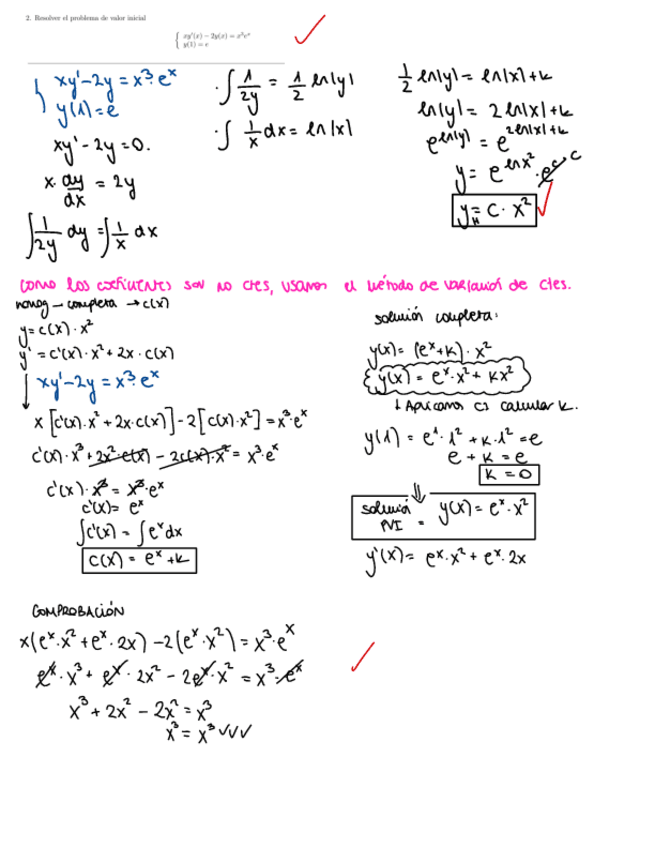 2. Resolver el problema de valor inicial
{ xy'(x) − 2y(x) = x³eˣ
y(1) = e
{ xy'−2y = x³·eˣ
y(1) = e
xy'−2y = 0.
x·dy/dx = 2y
∫ 1/2y dy = ∫ 1/x dx
·∫ 1/2y = 1/2 ln|y|
·∫ 1/x dx = ln|x|
1/2 ln|y| = ln|x|+k
ln|y| = 2 ln|x|+k
e^ln|y| = e^2ln|x|+k
y = e^ln x² · e^c C
y_H = C · x²
como los coeficientes son no ctes, usamos el método de variación de ctes.
homog – completa → c(x)
y = c(x) · x²
y' = c'(x) · x² + 2x · c(x)
xy'−2y = x³·eˣ
x [c'(x)·x² + 2x·c(x)] − 2[c(x)·x²] = x³·eˣ
c'(x)·x³ + 2x²·c(x) − 2c(x)·x² = x³·eˣ
c'(x)·x³ = x³·eˣ
c'(x) = eˣ
∫c'(x) = ∫eˣdx
c(x) = eˣ + k
solución completa:
y(x) = (eˣ+k) · x²
y(x) = eˣ·x² + kx²
↓ Aplicamos CI calcular k.
y(1) = e¹·1² + k·1² = e
e + k = e
k = 0
⇓
solución PVI = y(x) = eˣ·x²
y'(x) = eˣ·x² + eˣ·2x
COMPROBACIÓN
x(eˣ·x² + eˣ·2x) − 2(eˣ·x²) = x³·eˣ
eˣ·x³ + eˣ·2x² − 2eˣ·x² = x³·eˣ
x³ + 2x² − 2x² = x³
x³ = x³ ✓✓✓